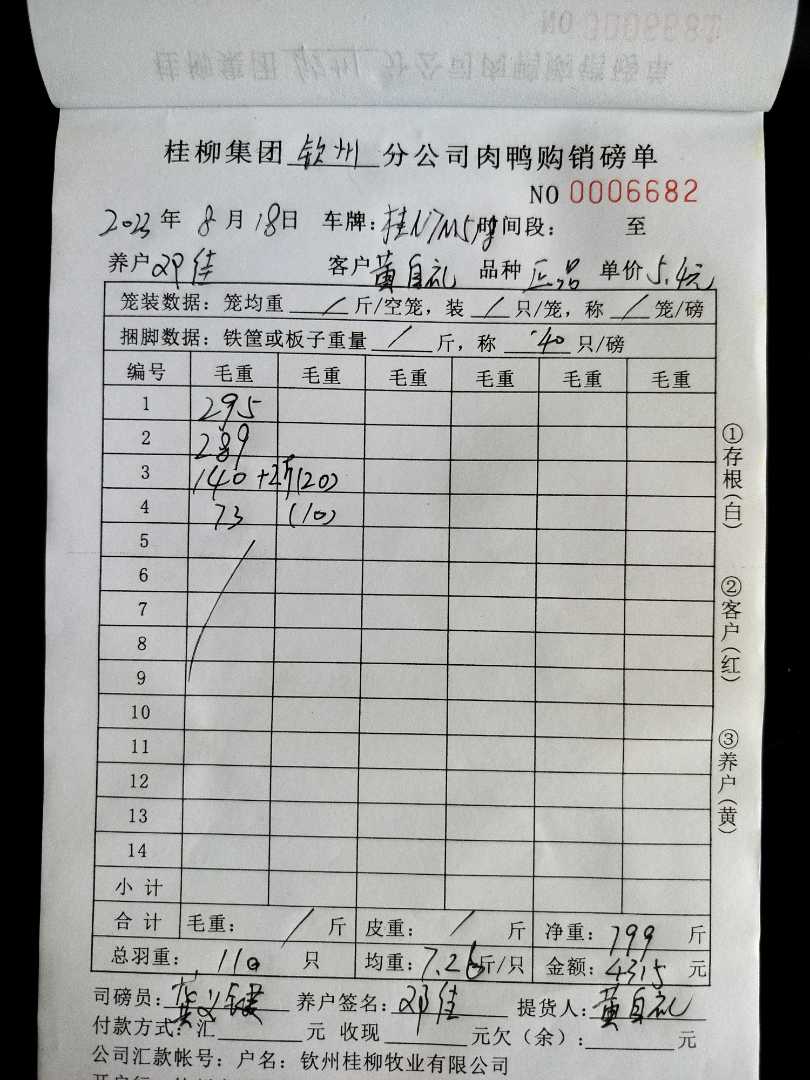 桂柳集团 钦州 分公司肉鸭购销磅单
NO 0006682
2023 年 8 月 18 日 车牌: 桂N7M5 时间段: 至
养户 邓佳 客户 黄自礼 品种 正品 单价 5.4元
笼装数据: 笼均重 / 斤/空笼, 装 / 只/笼, 称 / 笼/磅
捆脚数据: 铁筐或板子重量 / 斤, 称 40 只/磅
编号 毛重 毛重 毛重 毛重 毛重 毛重
1 295
2 289
3 140 +2斤(20)
4 73 (10)
5
6
7
8
9
10
11
12
13
14
小计
合计 毛重: / 斤 皮重: / 斤 净重: 799 斤
总羽重: 110 只 均重: 7.26 斤/只 金额: 4315 元
司磅员: 养户签名: 邓佳 提货人: 黄自礼
付款方式: 汇 元 收现 元欠(余): 元
公司汇款帐号: 户名: 钦州桂柳牧业有限公司
①存根(白)
②客户(红)
③养户(黄)